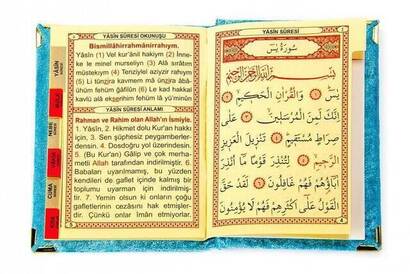 YÂSÎN SÛRESİ OKUNUŞU
Bismillâhirrahmânirrahıym.
Yâsîn (1) Vel kur'ânil hakiym (2) İnne-
ke le minel murseliyn (3) Alâ sırâtım
müstekıym (4) Tenziylel aziyzir rahıym
(5) Li tünzira kavmem mâ ünzira âbâ-
ühüm fehüm ğâfilûn (6) Le kad hakkal
kavlü alâ ekserihim fehüm lâ yü'minûn
YÂSÎN SÛRESİ ANLAMI
Rahman ve Rahim olan Allah'ın İsmiyle.
1. Yâsîn, 2. Hikmet dolu Kur'an hakkı
için, 3. Sen şüphesiz peygamberler-
densin. 4. Dosdoğru yol üzerindesin.
5. (Bu Kur'an) Gâlip ve çok merha-
metli Allah tarafından indirilmiştir. 6.
Babaları uyarılmamış, bu yüzden
kendileri de gaflet içinde kalmış bir
toplumu uyarman için indirilmiş-
tir. 7. Yemin olsun ki onların çoğu
gafletlerinin cezasını hak etmişler-
dir. Çünkü onlar îmân etmiyorlar.
YÂSÎN SÛRESİ
سُورَةُ يٰسٓ
بِسْمِ اللّٰهِ الرَّحْمٰنِ الرَّحِيمِ
يٰسٓ ﴿١﴾ وَالْقُرْاٰنِ الْحَكِيمِ ﴿٢﴾
اِنَّكَ لَمِنَ الْمُرْسَلِينَ ﴿٣﴾ عَلٰى
صِرَاطٍ مُسْتَقِيمٍ ﴿٤﴾ تَنْزِيلَ الْعَزِيزِ
الرَّحِيمِ ﴿٥﴾ لِتُنْذِرَ قَوْمًا مَٓا اُنْذِرَ
اٰبَٓاؤُهُمْ فَهُمْ غَافِلُونَ ﴿٦﴾ لَقَدْ حَقَّ
الْقَوْلُ عَلٰٓى اَكْثَرِهِمْ فَهُمْ لَا يُؤْمِنُونَ
YÂSÎN
CUMA